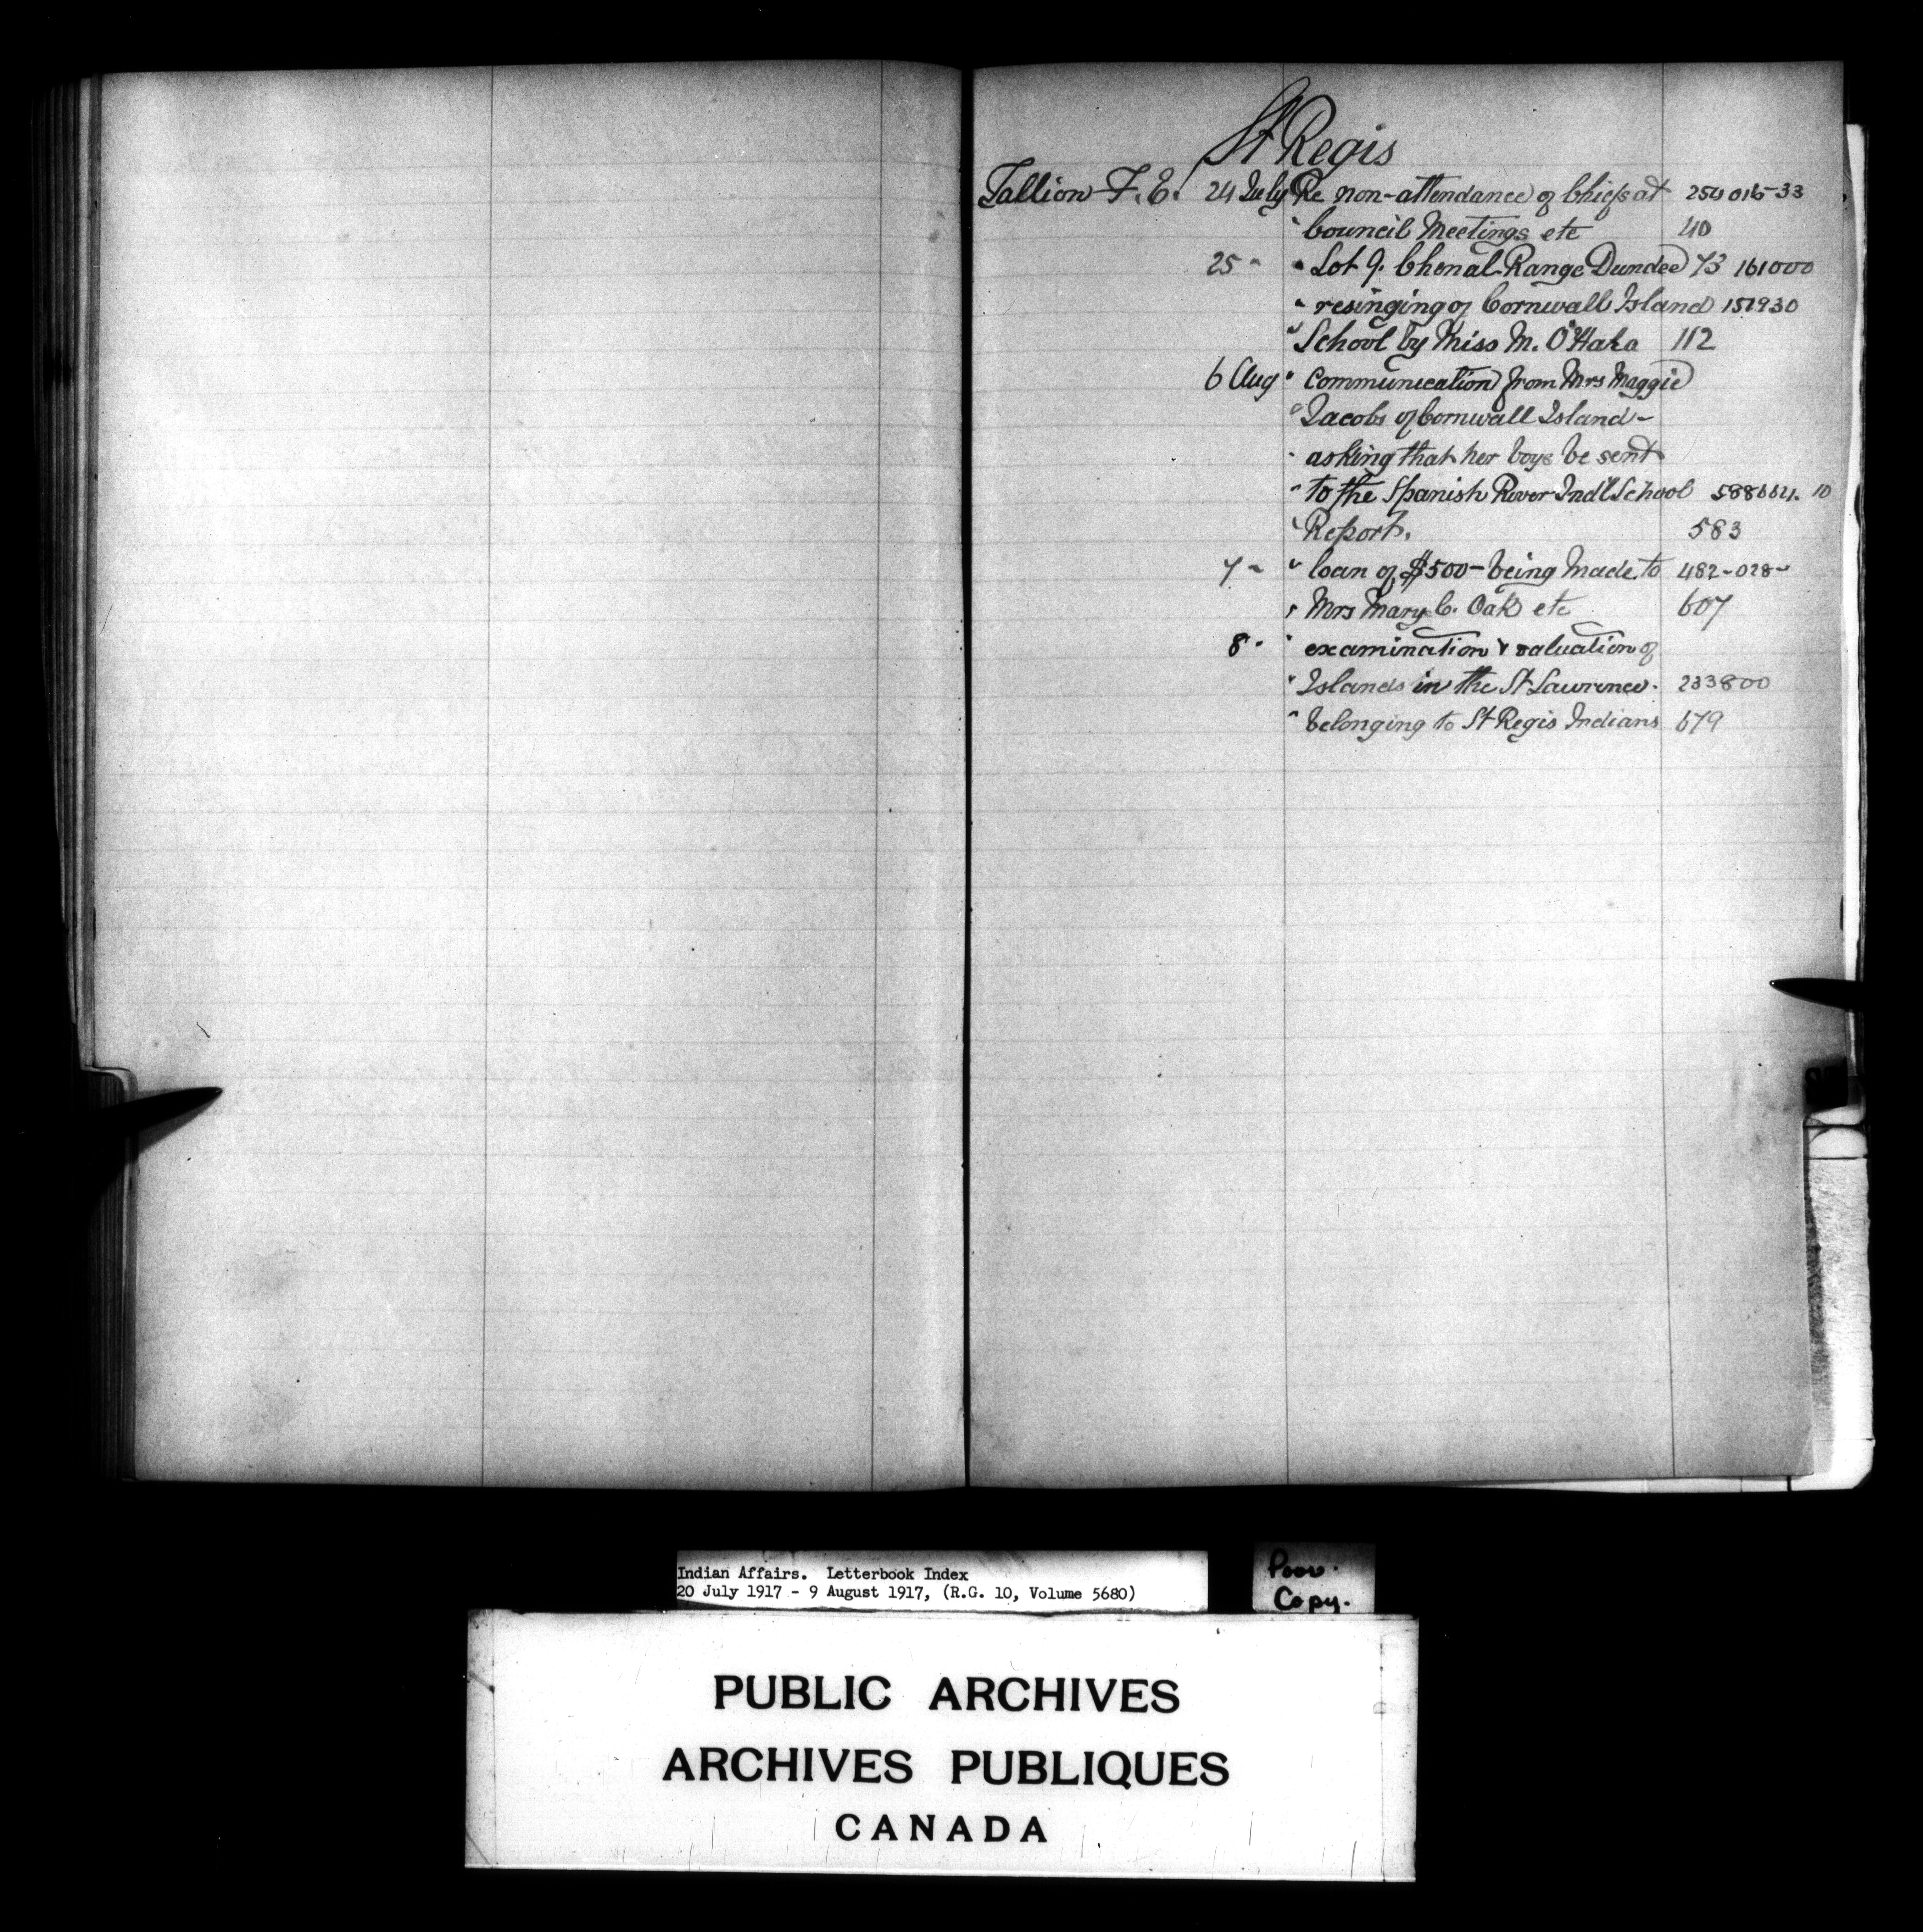 St Regis
Tallion F. E. 24 July Re non-attendance of Chiefs at 254016-33
" Council Meetings etc 40
25 " " Lot 9. Chenal Range Dundee 73 161000
" resinging of Cornwall Island 151930
" School by Miss M. O'Hara 112
6 Aug " Communication from Mrs Maggie
" Jacobs of Cornwall Island -
" asking that her boys be sent
" to the Spanish River Ind'l School 588664. 10
" Report. 583
7 " " loan of $500 - being made to 482-028-
" Mrs Mary C. Oak etc 607
8 " " examination & valuation of
" Islands in the St Lawrence. 233800
" belonging to St Regis Indians 679
Indian Affairs. Letterbook Index
20 July 1917 - 9 August 1917, (R.G. 10, Volume 5680)
Poor.
Copy.
PUBLIC ARCHIVES
ARCHIVES PUBLIQUES
CANADA